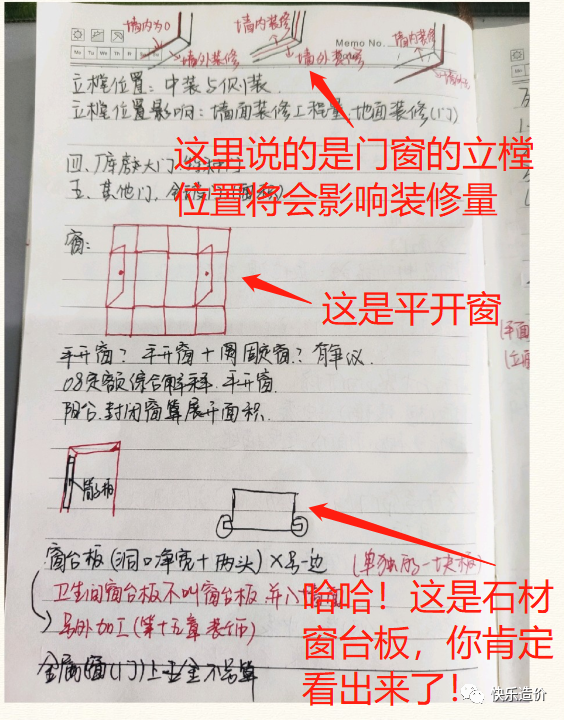 墙内为0
墙外装修
墙内装修
墙外装修
墙内装修
Memo No.
Mo Tu We Th
立樘位置：中装与侧装.
立樘位置影响：墙面装修工程量.地面装修(门)
这里说的是门窗的立樘
位置将会影响装修量
四、厂库房大门、特种门
五、其他门.
窗：
这是平开窗
平开窗？平开窗+固定窗？有争议.
08定额综合解释.平开窗.
阳台.封闭窗算展开面积.
筒子板
窗台板(洞口净宽+两头)×另一边
(单独的一块板)
卫生间窗台板不叫窗台板.并入墙面
另外加工(第十五章 装饰)
金属窗(门)上五金不另算
哈哈！这是石材
窗台板，你肯定
看出来了！
快乐造价